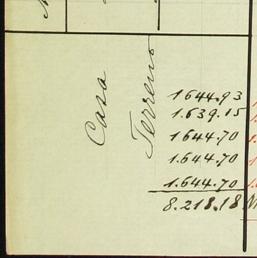 Casa
Terreno
1644.93
1.639.15
1644.70
1.644.70
1.644.70
8.218.18